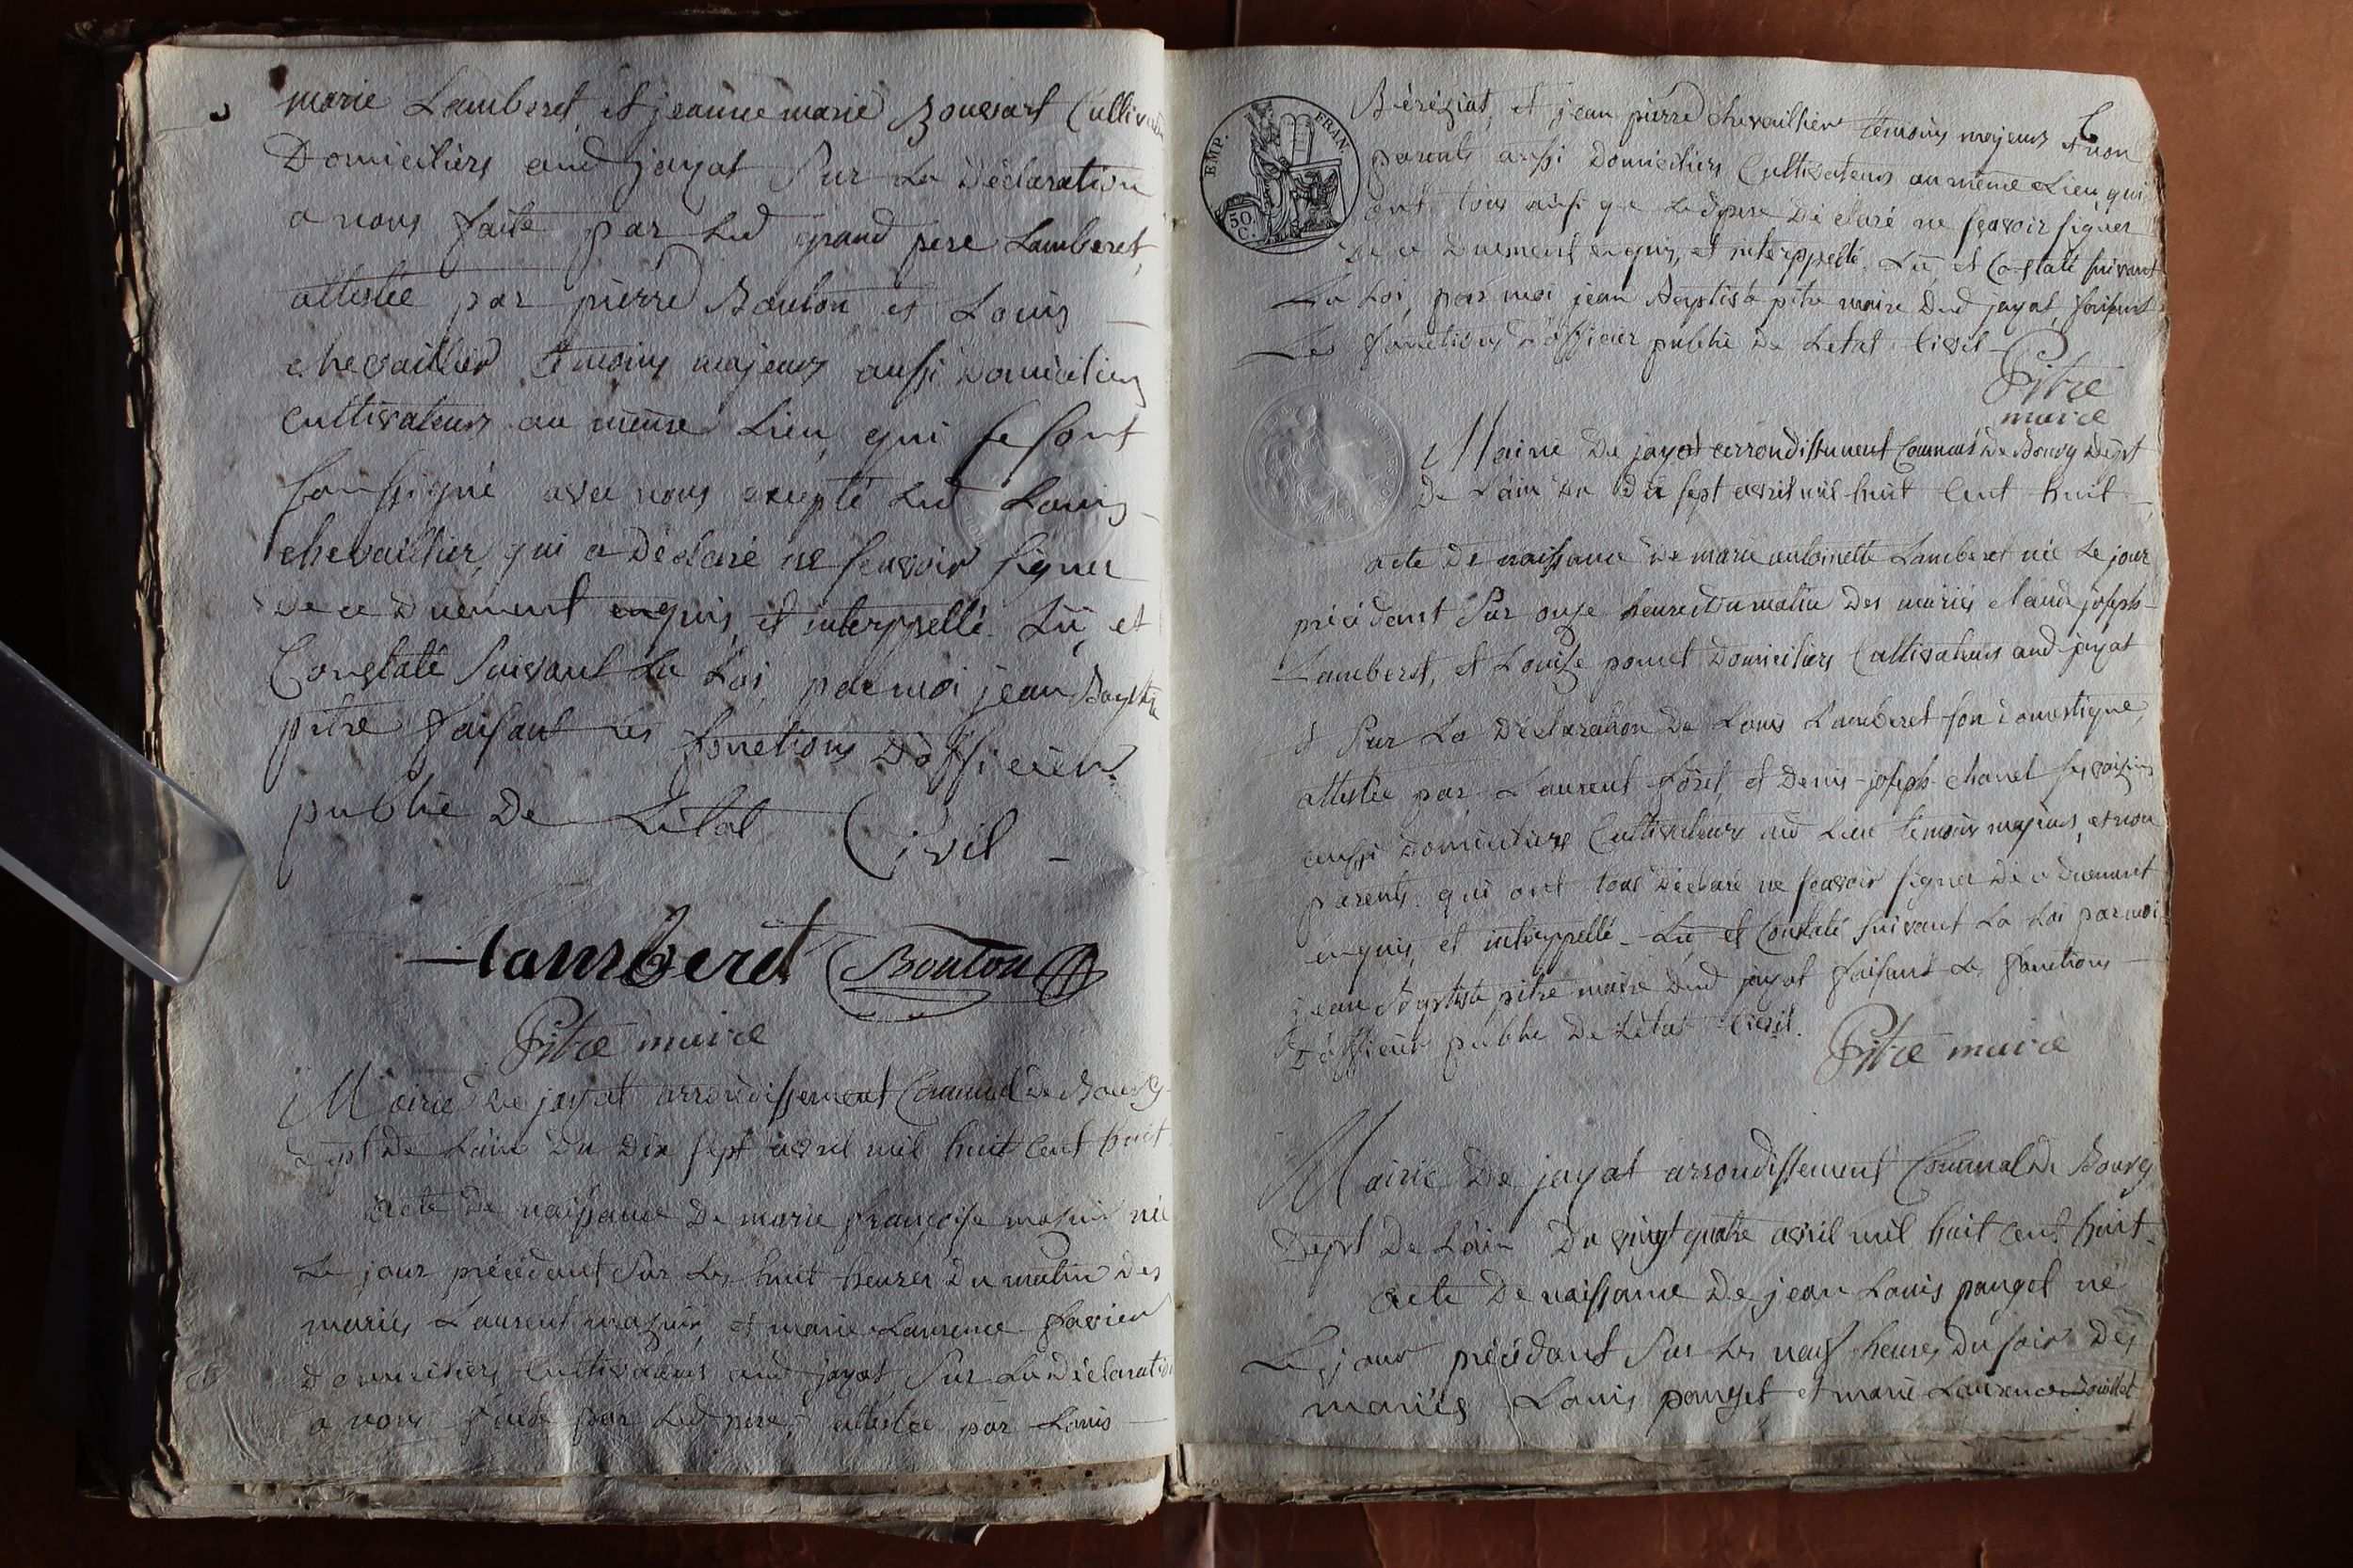 marie Lamberet, et jeanne marie Bouvart Cultiva
Domiciliés aud jayat Sur La Déclaration
a nous faite par Led grand pere Lamberet,
attestée par pierre Bouton et Louis
chevaillier temoins majeurs aussi Domiciliés
Cultivateurs au même Lieu, qui se sont
soussigné avec nous excepté Led Louis
chevaillier, qui a Déclaré ne scavoir signer
de ce Duement enquis, et interppellé. Lu, et
Constaté suivant La Loi, par moi jean Baptiste
pitre faisant les fonctions D'officier
public De Létat Civil
Lamberet Bouton
Pitre maire
Mairie De jayat arrondissement Communal De Bourg
Dept De Lain Du Dix sept avril mil huit Cent huit
acte De naissance De marie françoise née
Le jour précédant Sur Les huit heures Du matin Des
mariés Laurent et marie Laurence favier
Domiciliés Cultivateurs aud jayat, Sur La Déclaration
a nous faite par Led pere, attestée par Louis
EMP. FRAN.
50 C.
6
Béréziat, et jean pierre chevaillier temoins majeurs et non
parents aussi Domiciliés Cultivateurs au même Lieu, qui
ont tous ainsi que Led pere Déclaré ne scavoir signer
De ce Duement enquis, et interppellé. Lu, et Constaté suivant
La Loi, par moi jean Baptiste pitre maire Dud jayat, faisant
Les fonctions D'officier public De Letat Civil
Pitre
maire
Mairie De jayat arrondissement Communal De Bourg Dept
De Lain Du Dix sept avril mil huit Cent huit
acte De naissance De marie antoinette Lamberet née Le jour
précédant Sur onze heures Du matin Des mariés claude joseph
Lamberet, et Louise ponet Domiciliés Cultivateurs aud jayat
et Sur La Déclaration De Louis Lamberet son Domestique,
attestée par Laurent et Denis-joseph chanel ses voisins
aussi Domiciliés Cultivateurs aud Lieu temoins majeurs, et non
parents. qui ont tous Déclaré ne scavoir signer De ce Duement
enquis, et interppellé. Lu, et Constaté suivant La Loi par moi
jean Baptiste pitre maire Dud jayat faisant Les fonctions
D'officier public De Létat Civil.
Pitre maire
Mairie De jayat arrondissement Communal De Bourg
Dept De Lain Du vingt quatre avril mil huit Cent huit
acte De naissance De jean Louis panget né
Le jour précédant Sur Les neuf heures Du soir Des
mariés Louis panget et marie Laurence